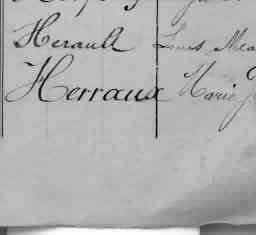 Herault Louis
Herraux Marie